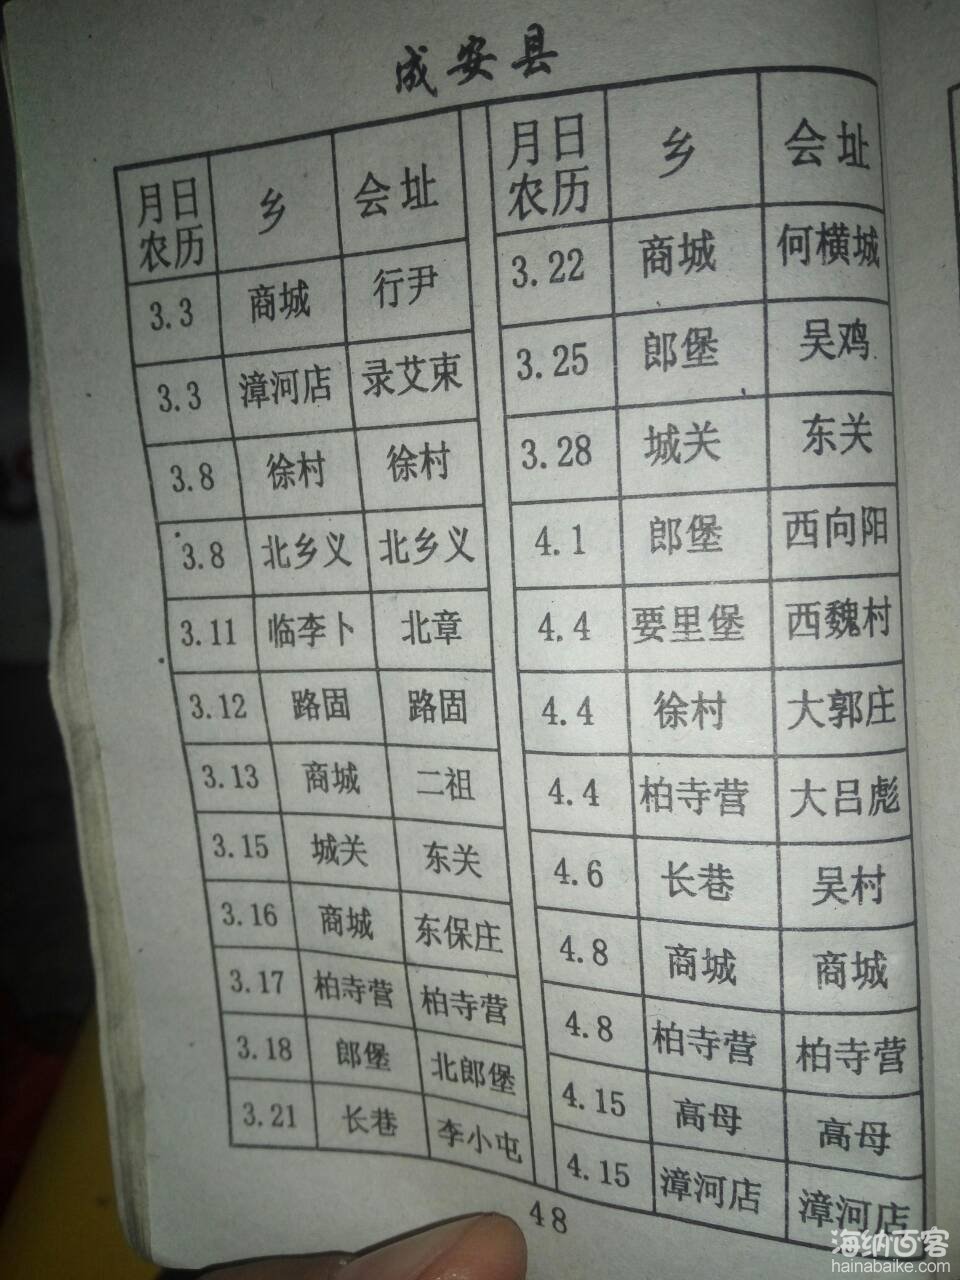 成安县
月日农历 乡 会址
3.3 商城 行尹
3.3 漳河店 录艾束
3.8 徐村 徐村
3.8 北乡义 北乡义
3.11 临李卜 北章
3.12 路固 路固
3.13 商城 二祖
3.15 城关 东关
3.16 商城 东保庄
3.17 柏寺营 柏寺营
3.18 郎堡 北郎堡
3.21 长巷 李小屯
月日农历 乡 会址
3.22 商城 何横城
3.25 郎堡 吴鸡
3.28 城关 东关
4.1 郎堡 西向阳
4.4 要里堡 西魏村
4.4 徐村 大郭庄
4.4 柏寺营 大吕彪
4.6 长巷 吴村
4.8 商城 商城
4.8 柏寺营 柏寺营
4.15 高母 高母
4.15 漳河店 漳河店
48
海纳百客
hainabaike.com